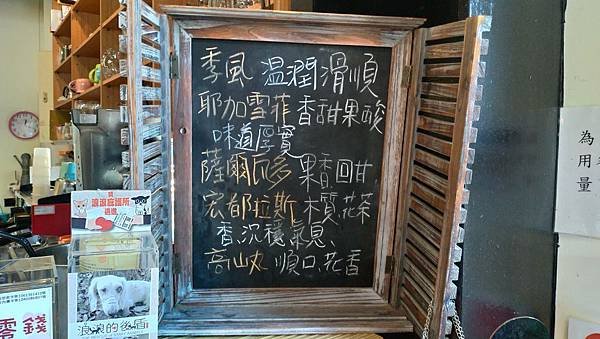 季風 溫潤滑順
耶加雪菲 香甜果酸
味道厚實
薩爾瓦多 果香、回甘
宏都拉斯 木質、花茶
香、沉穩氣息、
高山丸 順口、花香
浪浪庇護所
浪浪的後盾
零錢
為
用
量